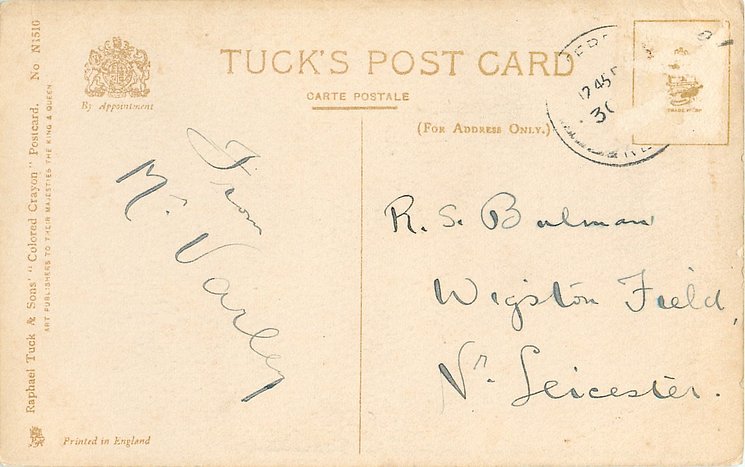 TUCK'S POST CARD
CARTE POSTALE
(FOR ADDRESS ONLY.)
By Appointment
Raphael Tuck & Sons' "Colored Crayon" Postcard. No N1510
ART PUBLISHERS TO THEIR MAJESTIES THE KING & QUEEN
From
Mr. Varley
R. S. Bulman
Wigston Field,
Nr. Leicester.
12 45
30
TRADE MARK
Printed in England